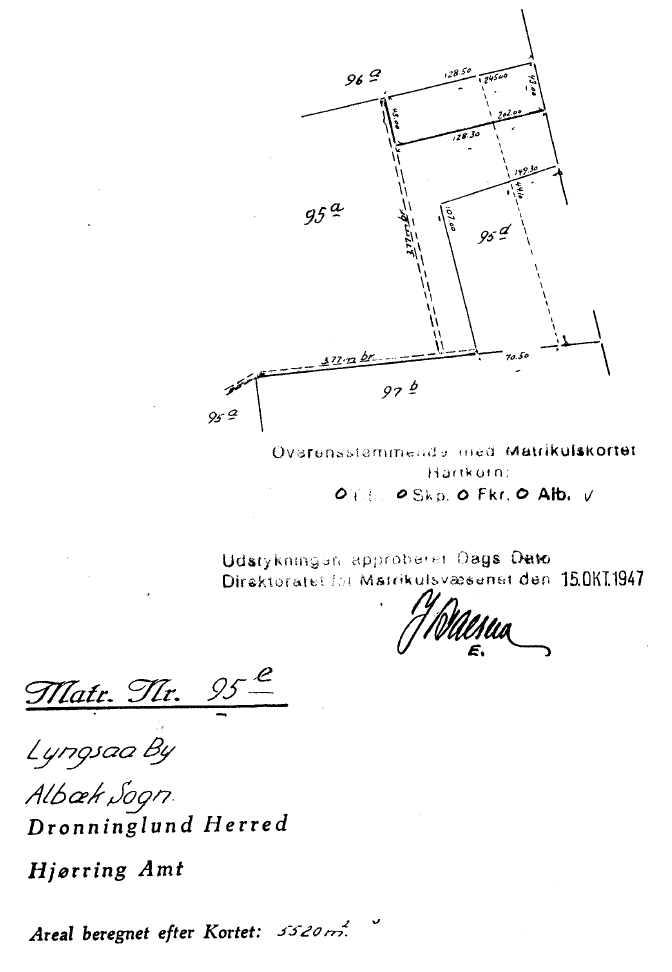 96 a
128.50
245.00
43.00
43.00
202.00
128.30
149.30
95 a
107.00
95 d
3 m br
70.50
97 b
95 a
Overensstemmende med Matrikulskortet
Hartkorn:
0 Skp. 0 Fkr. 0 Alb.
Udstykningen approberet Dags Dato
Direktoratet for Matrikulsvæsenet den 15.OKT.1947
E.
Matr. Nr. 95 e
Lyngsaa By
Albæk Sogn.
Dronninglund Herred
Hjørring Amt
Areal beregnet efter Kortet: 5520 m².